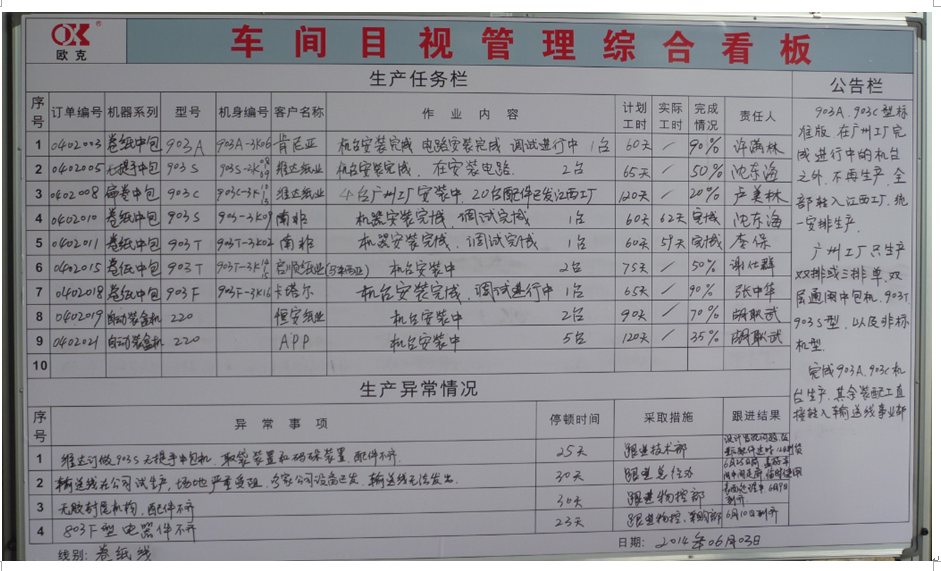 OK®
欧克
车间目视管理综合看板
生产任务栏
序号 订单编号 机器系列 型号 机身编号 客户名称 作业内容 计划工时 实际工时 完成情况 责任人
1 0402003 卷纸中包 903A 903A-3K06 肯尼亚 机台安装完成 电路安装完成 调试进行中 1台 60天 / 90% 许满林
2 0402005 无提手中包 903S 维达纸业 机台安装完成, 在安装电路. 2台 65天 / 50% 沈东海
3 0402008 扁卷中包 903C 维达纸业 4台广州工厂安装中, 20台配件已发江西工厂 120天 / 20% 卢美林
4 0402010 卷纸中包 903S 903-3K09 南非 机器安装完成, 调试完成 1台 60天 62天 完成 沈东海
5 0402011 卷纸中包 903T 903T-3K02 南非 机器安装完成, 调试完成 1台 60天 59天 完成 李保
6 0402015 卷纸中包 903T 机台安装中 2台 75天 / 50% 谢仕群
7 0402018 卷纸中包 903F 903F-3K16 卡塔尔 机台安装完成, 调试进行中 1台 65天 / 90% 张中华
8 0402019 自动装盒机 220 恒安纸业 机台安装中 2台 90天 / 70% 胡耿武
9 0402021 自动装盒机 220 APP 机台安装中 5台 120天 / 35% 胡耿武
10
公告栏
903A, 903C型标
准版, 在广州工厂完
成进行中的机台
之外, 不再生产, 全
部转入江西工厂, 统
一安排生产.
广州工厂只生产
双排或三排单, 双
层通用中包机, 903T
903S型, 以及非标
机型.
完成903A, 903C机
台生产, 其余装配工直
接转入输送线事业部
生产异常情况
序号 异常事项 停顿时间 采取措施 跟进结果
1 维达订做903S无提手中包机, 取袋装置和码垛装置, 配件不齐. 25天 跟进技术部
2 输送线在公司试生产, 场地严重受阻, 输送线无法发出. 30天 跟进总经办
3 无胶封尾机构, 配件不齐 30天 跟进物控部
4 803F型电器件不齐 23天 跟进物控, 采购部 6月10日到齐
线别: 卷纸线
日期: 2014年06月03日